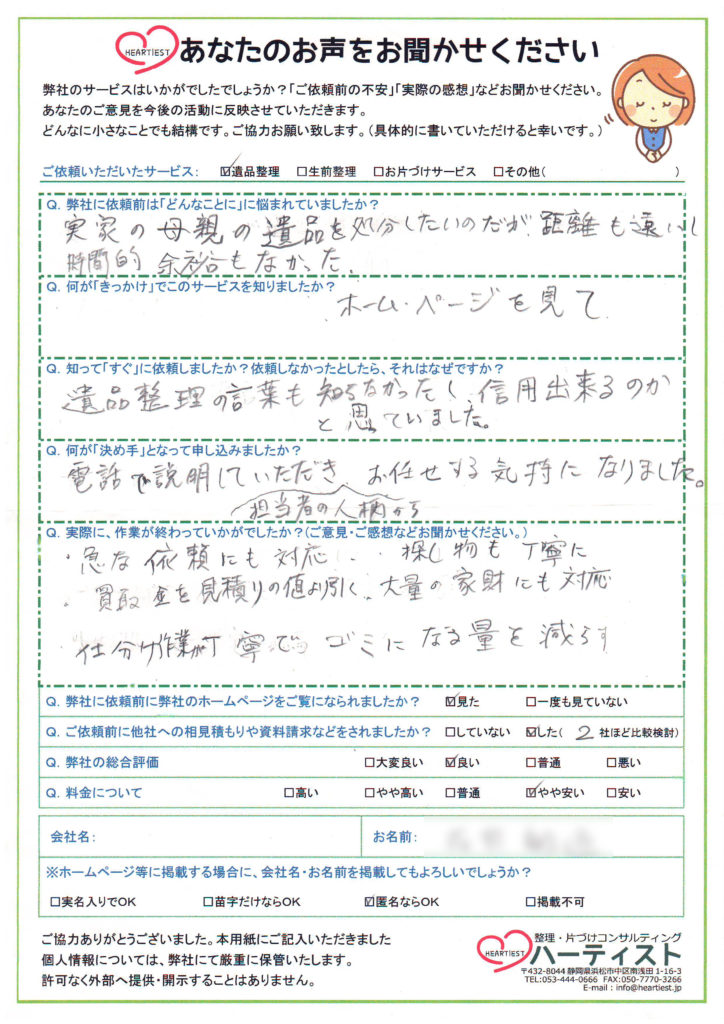 HEARTIEST あなたのお声をお聞かせください
弊社のサービスはいかがでしたでしょうか？「ご依頼前の不安」「実際の感想」などお聞かせください。
あなたのご意見を今後の活動に反映させていただきます。
どんなに小さなことでも結構です。ご協力お願い致します。（具体的に書いていただけると幸いです。）
ご依頼いただいたサービス： ☑遺品整理 □生前整理 □お片づけサービス □その他（ ）
Q. 弊社に依頼前は「どんなことに」に悩まれていましたか？
実家の母親の遺品を処分したいのだが、距離も遠いし
時間的余裕もなかった。
Q. 何が「きっかけ」でこのサービスを知りましたか？
ホーム・ページを見て
Q. 知って「すぐ」に依頼しましたか？依頼しなかったとしたら、それはなぜですか？
遺品整理の言葉も知らなかったし、信用出来るのか
と思っていました。
Q. 何が「決め手」となって申し込みましたか？
電話で説明していただき お任せする気持になりました。
担当者の人柄から
Q. 実際に、作業が終わっていかがでしたか？（ご意見・ご感想などお聞かせください。）
・急な依頼にも対応 ・探し物も丁寧に
・買取金を見積りの値より引く、大量の家財にも対応
仕分け作業が丁寧で ゴミになる量を減らす
Q. 弊社に依頼前に弊社のホームページをご覧になられましたか？ ☑見た □一度も見ていない
Q. ご依頼前に他社への相見積もりや資料請求などをされましたか？ □していない ☑した（ 2 社ほど比較検討）
Q. 弊社の総合評価 □大変良い ☑良い □普通 □悪い
Q. 料金について □高い □やや高い □普通 ☑やや安い □安い
会社名： お名前：
※ホームページ等に掲載する場合に、会社名・お名前を掲載してもよろしいでしょうか？
□実名入りでOK □苗字だけならOK ☑匿名ならOK □掲載不可
ご協力ありがとうございました。本用紙にご記入いただきました
個人情報については、弊社にて厳重に保管いたします。
許可なく外部へ提供・開示することはありません。
HEARTIEST 整理・片づけコンサルティング
ハーティスト
〒432-8044 静岡県浜松市中区南浅田1-16-3
TEL:053-444-0666 FAX:050-7770-3266
E-mail：info@heartiest.jp